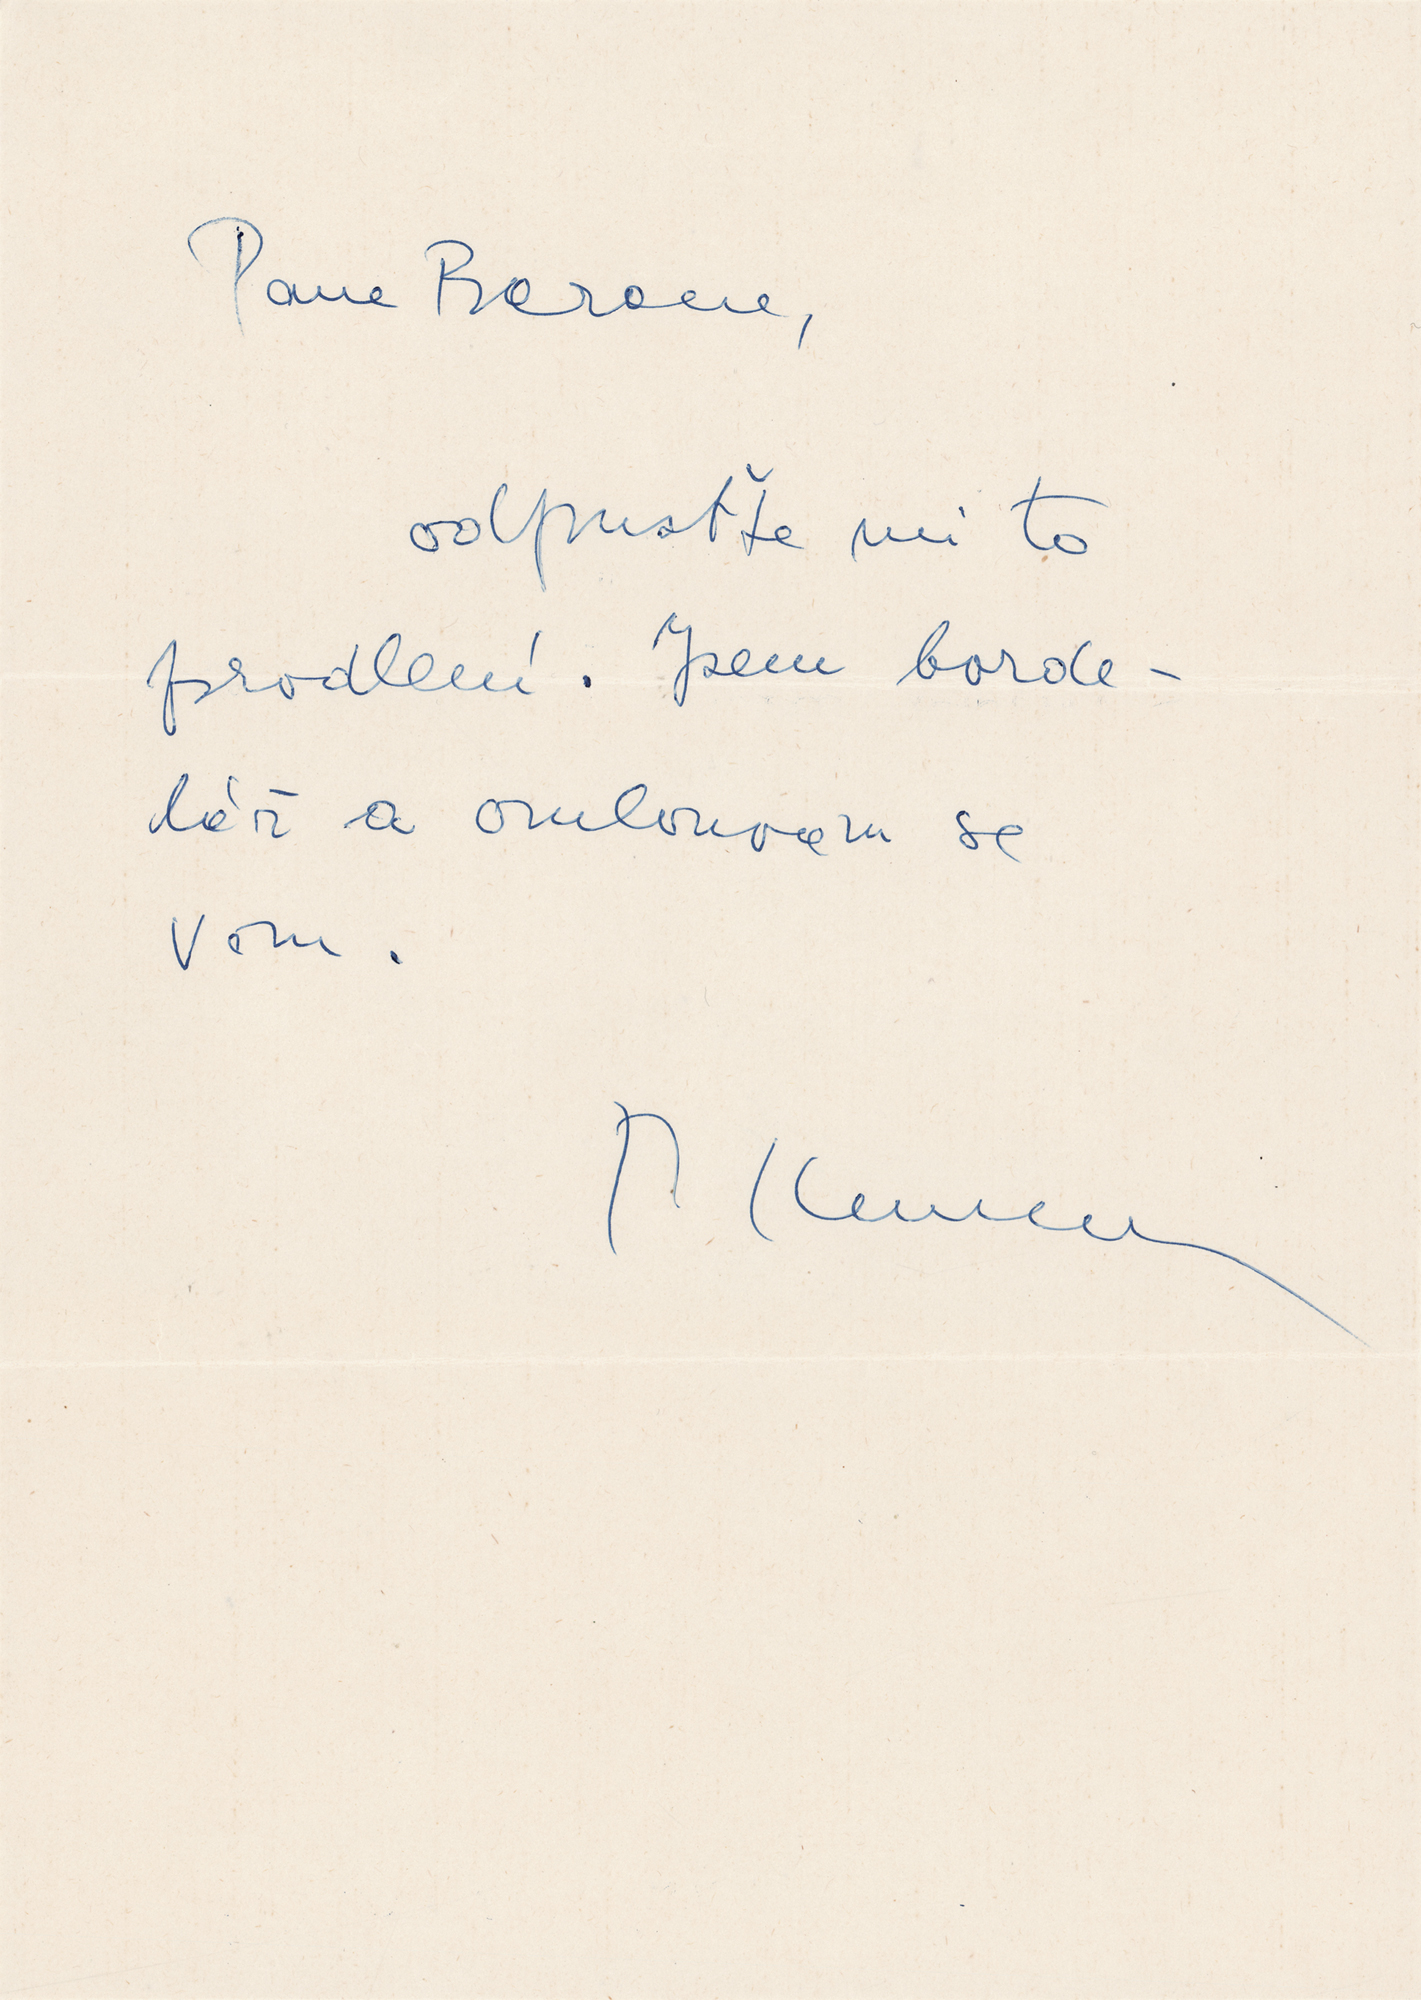 Pane Barone,
odpusťte mi to
prodlení. Jsem borde-
lář a omlouvam se
vam.